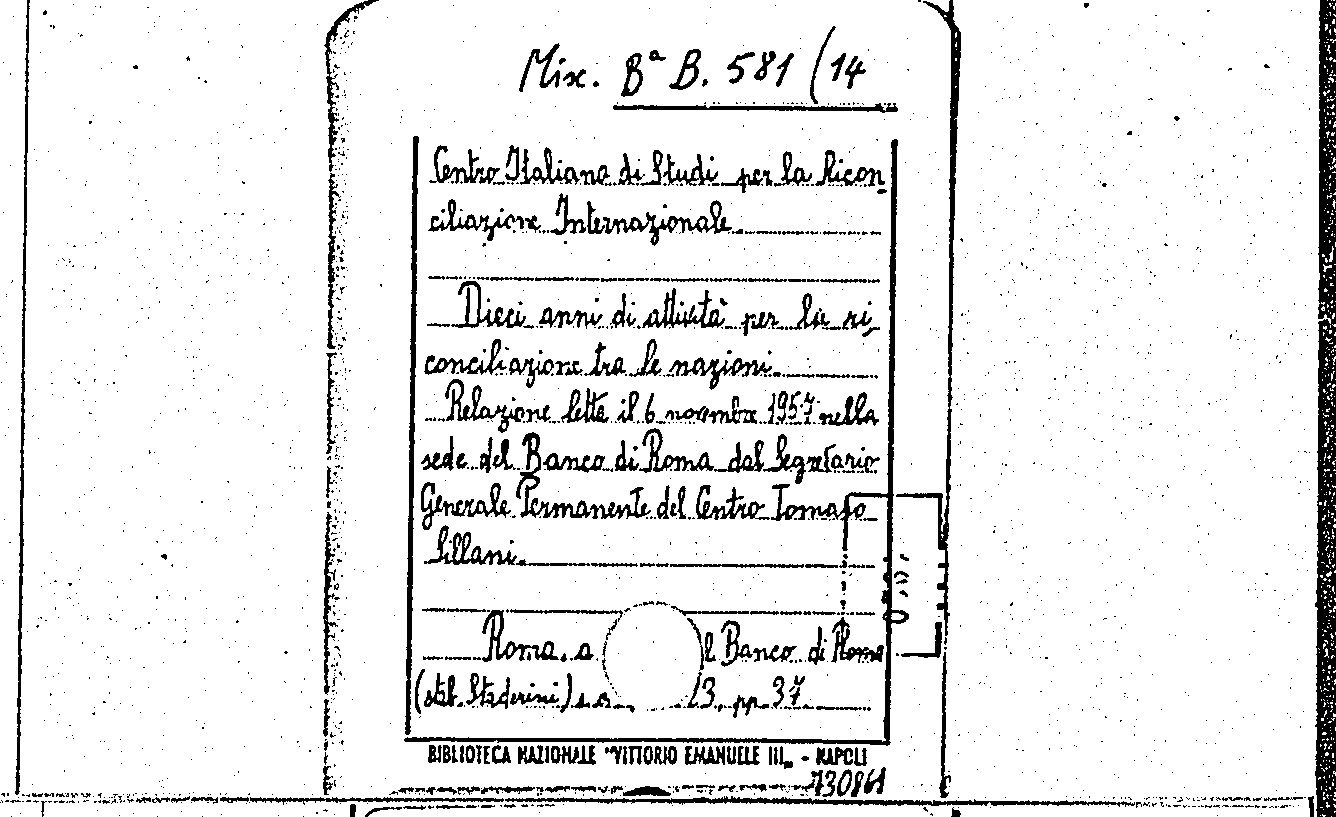 Misc. Bª B. 581 (14
Centro Italiano di Studi per la Ricon
ciliazione Internazionale.
Dieci anni di attività per la ri
conciliazione tra le nazioni.
Relazione letta il 6 novembre 1957 nella
sede del Banco di Roma dal Segretario
Generale Permanente del Centro Tomaso
Sillani.
Roma, a l Banco di Roma
(stab. Staderini) s. a. 23, pp. 37
BIBLIOTECA NAZIONALE "VITTORIO EMANUELE III„ - NAPOLI
730861